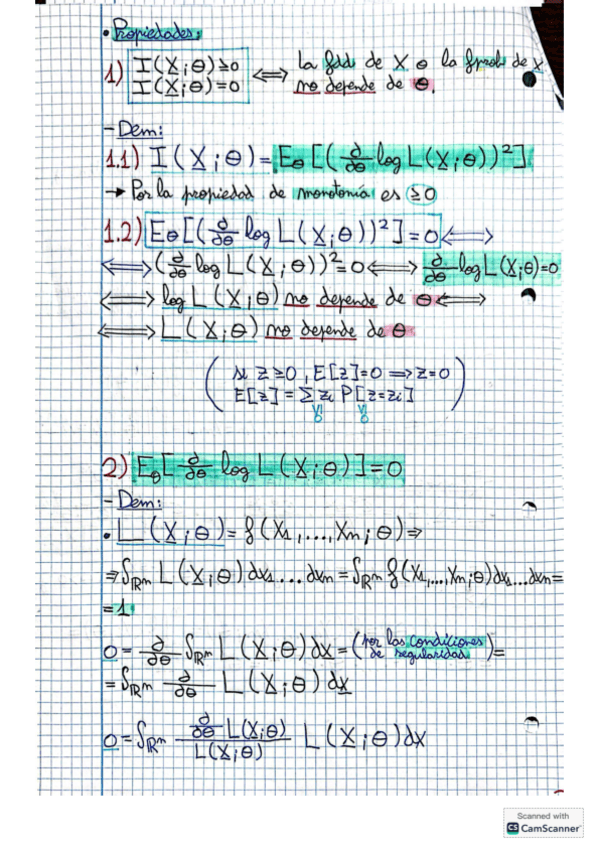 • Propiedades:
1) I(X;θ)≥0 ⟺ La fdd de X o la fprob de X
I(X;θ)=0 no depende de θ.
- Dem:
1.1) I(X;θ)=Eθ[(∂/∂θ log L(X;θ))²]
→ Por la propiedad de monotonía es ≥0
1.2) Eθ[(∂/∂θ log L(X;θ))²]=0 ⟺
⟺ (∂/∂θ log L(X;θ))²=0 ⟺ ∂/∂θ log L(X;θ)=0
⟺ log L(X;θ) no depende de θ ⟺
⟺ L(X;θ) no depende de θ
(si z≥0, E[z]=0 ⟹ z=0
E[z]=Σ zi P[z=zi])
VI VI
2) Eθ[∂/∂θ log L(X;θ)]=0
- Dem:
• L(X;θ)=f(X1,...,Xn;θ)⇒
⇒∫ℝⁿ L(X;θ)dx1...dxn=∫ℝⁿ f(X1,...,Xn;θ)dx1...dxn=
=1
0=∂/∂θ ∫ℝⁿ L(X;θ)dx=(por las condiciones de regularidad)=
=∫ℝⁿ ∂/∂θ L(X;θ)dx
0=∫ℝⁿ (∂/∂θ L(X;θ))/(L(X;θ)) L(X;θ)dx
Scanned with
CS CamScanner